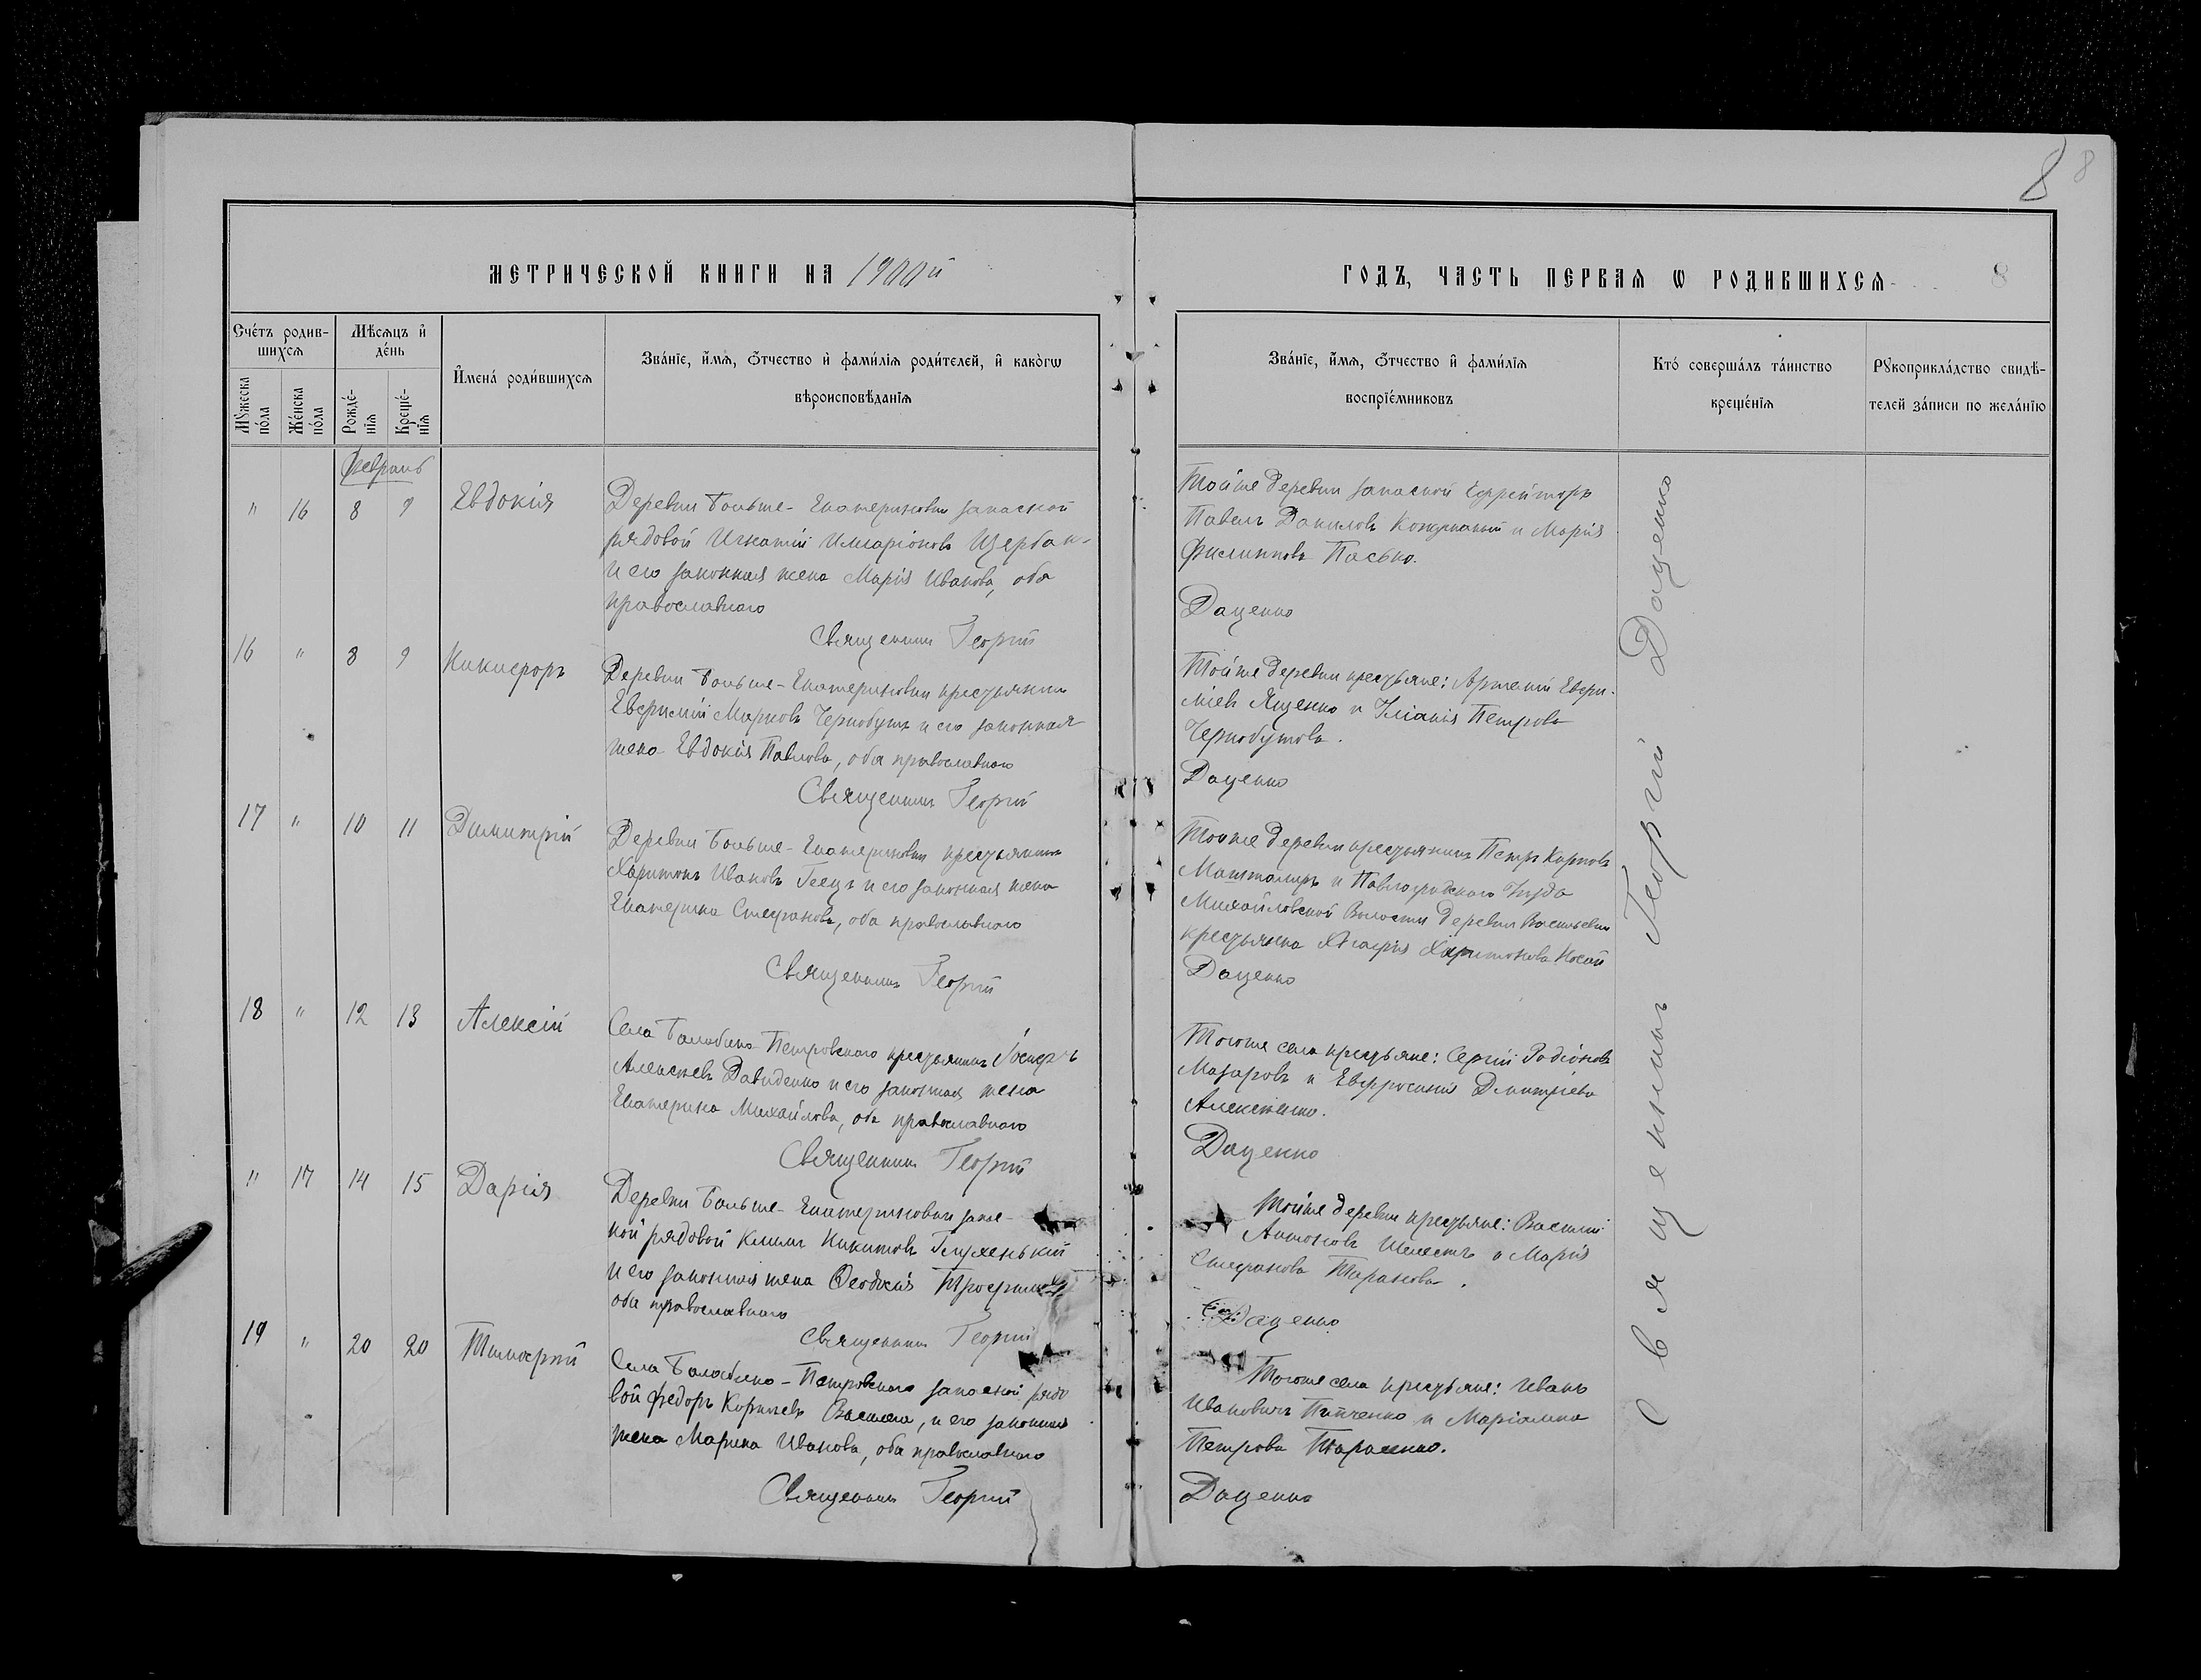 8 8
МЕТРИЧЕСКОЙ КНИГИ НА 1900й
ГОДЪ, ЧАСТЬ ПЕРВАЯ Ѡ РОДИВШИХСѦ 8
Сче́тъ родив-
шихсѧ
Мꙋжеска по́ла
Же́нска по́ла
Мѣсѧцъ и҆ де́нь
Рожде́-нїѧ
Креще́-нїѧ
И҆мена̀ роди́вшихсѧ
Зва́нїе, и҆́мѧ, ѻ҆́тчество и҆ фами́лїѧ роди́телей, и҆ како́гѡ
вѣроисповѣ́данїѧ
Зва́нїе, и҆́мѧ, ѻ҆́тчество и҆ фами́лїѧ
воспрїе́мниковъ
Кто́ соверша́лъ та́инство
креще́нїѧ
Рꙋкоприкла́дство свидѣ́-
телей за́писи по жела́нїю
Февраль
" 16 8 9 Евдокія
Деревни Больше-Екатериновки запасной
рядовой Игнатій Илларіоновъ Щербак-
и его законная жена Марія Иванова, оба
православнаго
Священникъ Георгій
Тойже деревни запасной Ефрейторъ
Павелъ Даниловъ и Марія
Филиппова Пасько.
Даценко
16 " 8 9 Никифоръ
Деревни Больше-Екатериновки крестьянинъ
Евфимій Марковъ и его законная
жена Евдокія Павлова, оба православнаго
Священникъ Георгій
Тойже деревни крестьяне: Арсеній Евфи-
міевъ Ященко и Петрова
Чернобутова.
Даценко
17 " 10 11 Димитрій
Деревни Больше-Екатериновки крестьянинъ
Харитонъ Ивановъ и его законная жена
Екатерина Стефанова, оба православнаго
Священникъ Георгій
Тойже деревни крестьянинъ Петръ Карповъ
и Павлоградскаго Уѣзда
Михайловской Волости деревни Васильевки
крестьянка Агафія Харитонова Носай
Даценко
18 " 12 13 Алексій
Села Балабино-Петровскаго крестьянинъ Іосифъ
Алексѣевъ Давиденко и его законная жена
Екатерина Михайлова, оба православнаго
Священникъ Георгій
Тогоже села крестьяне: Сергій Родіоновъ
Мазаровъ и Евфросинія Дмитріева
Алексѣенко.
Даценко
" 17 14 15 Дарія
Деревни Больше-Екатериновки запас-
ной рядовой Климъ Никитовъ Глухенькій
и его законная жена Ѳеодосія Трофимова
оба православнаго
Священникъ Георгій
Тойже деревни крестьяне: Василій
Антоновъ Шелестъ и Марія
Стефанова Таранова.
Даценко
19 " 20 20 Тимофей
Села Балабино-Петровскаго запасной рядо
вой Федоръ Корнѣевъ и его законная
жена Марина Иванова, оба православнаго
Священникъ Георгій
Тогоже села крестьяне: Иванъ
Ивановичъ и Маріамна
Петрова
Даценко
Священникъ Георгій Даценко